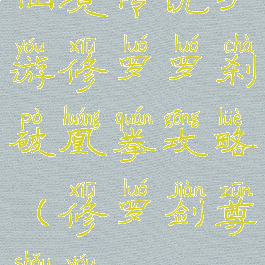 yóu xiū luó luó chà
游修罗罗刹
pò huáng quán gōng lüè
破凰拳攻略
xiū luó jiàn zūn
（修罗剑尊
shǒu yóu